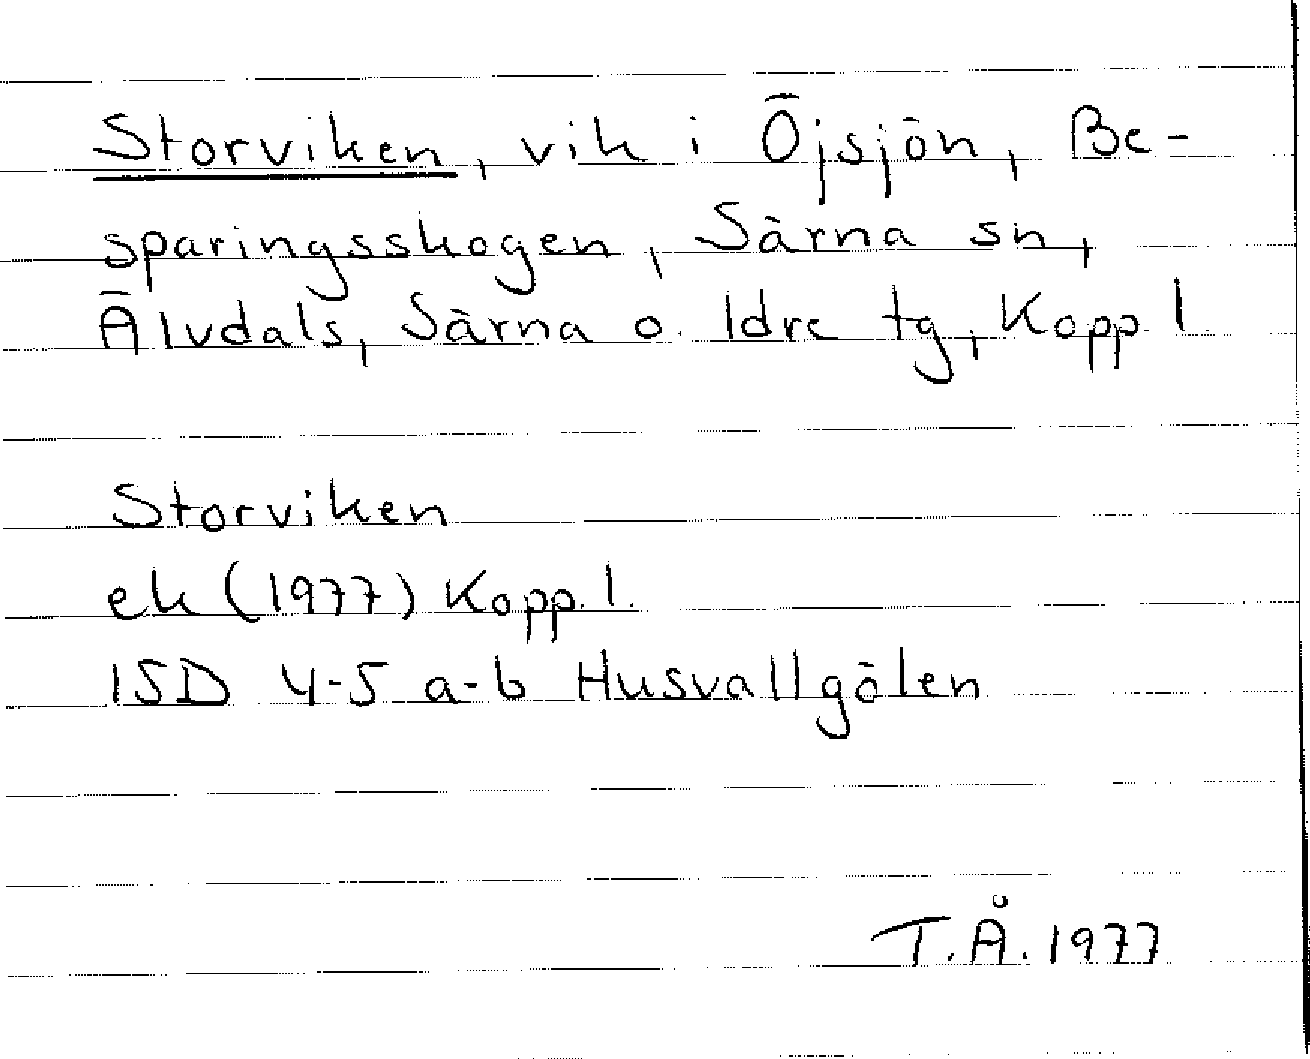 Storviken, vik i Öjsjön, Be-
sparingsskogen, Särna sn,
Älvdals, Särna o. Idre tg, Kopp. l.
Storviken
ek (1977) Kopp. l.
15D 4-5 a-b Husvallgölen
T.Å. 1977